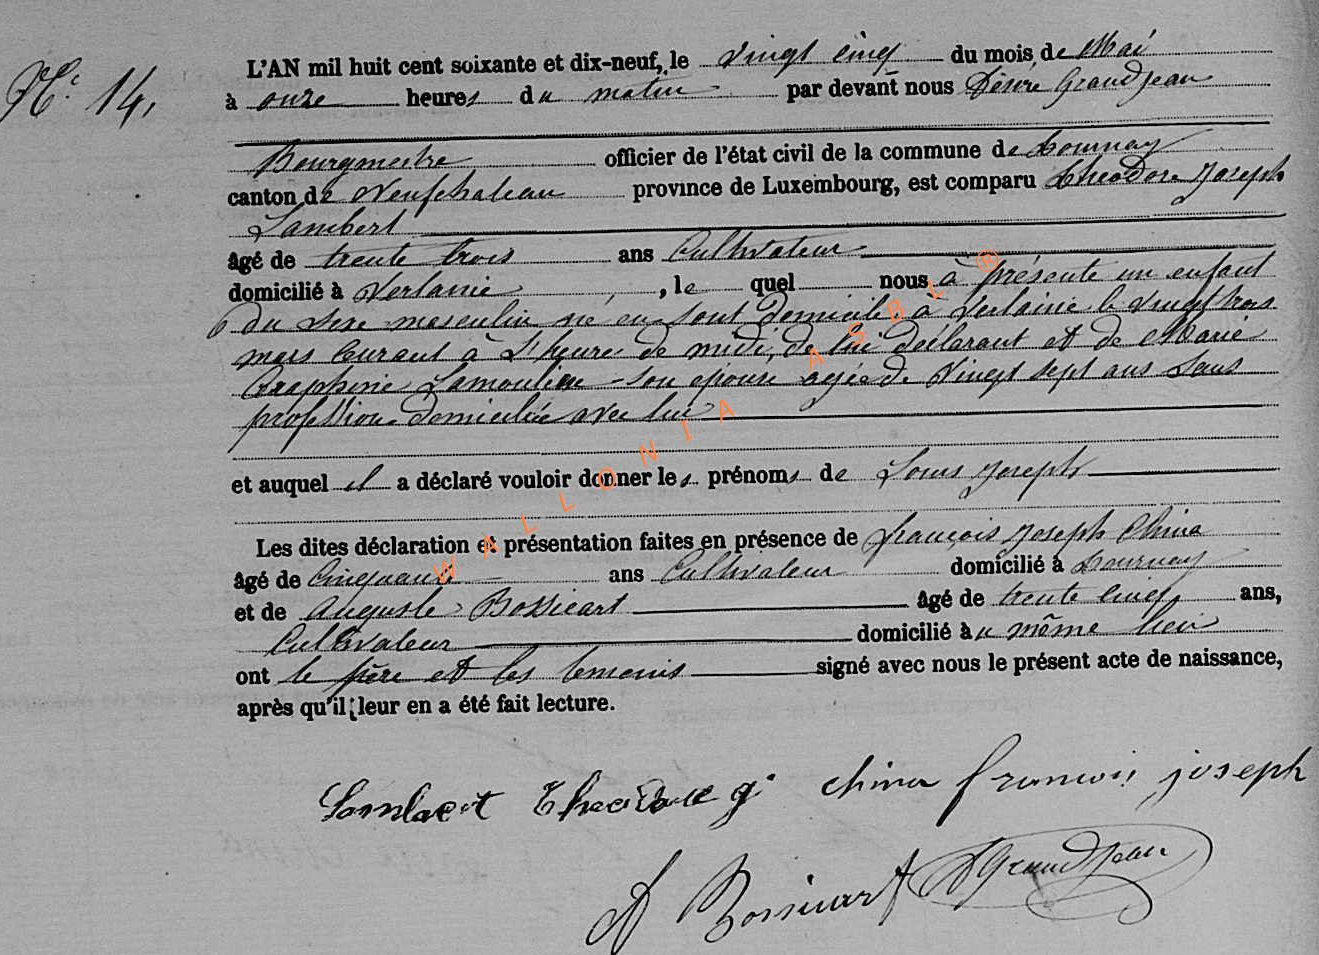 N° 14,
L'AN mil huit cent soixante et dix-neuf, le vingt cinq du mois de Mai
à onze heures du matin par devant nous Désiré Grandjean
Bourgmestre officier de l'état civil de la commune de Tournay
canton de Neufchateau province de Luxembourg, est comparu Théodore Joseph
Lambert
âgé de trente trois ans Cultivateur
domicilié à Verlaine, le quel nous à présenté un enfant
du sexe masculin né en sont domicile à Verlaine le vingt trois
mars Courant à l'heure de midi, de lui déclarant et de Marie
Lamouline son épouse agée de vingt sept ans sans
profession domiciliée avec lui
et auquel il a déclaré vouloir donner les prénoms de Louis Joseph
Les dites déclaration et présentation faites en présence de François Joseph China
âgé de Cinquante ans Cultivateur domicilié à Tournay
et de Auguste Bossicart âgé de trente cinq ans,
Cultivateur domicilié au même lieu
ont le père et les témoins signé avec nous le présent acte de naissance,
après qu'il leur en a été fait lecture.
Lambert Theodore j china francois joseph
A Bossicart D Grandjean
WALLONIA ASBL ®